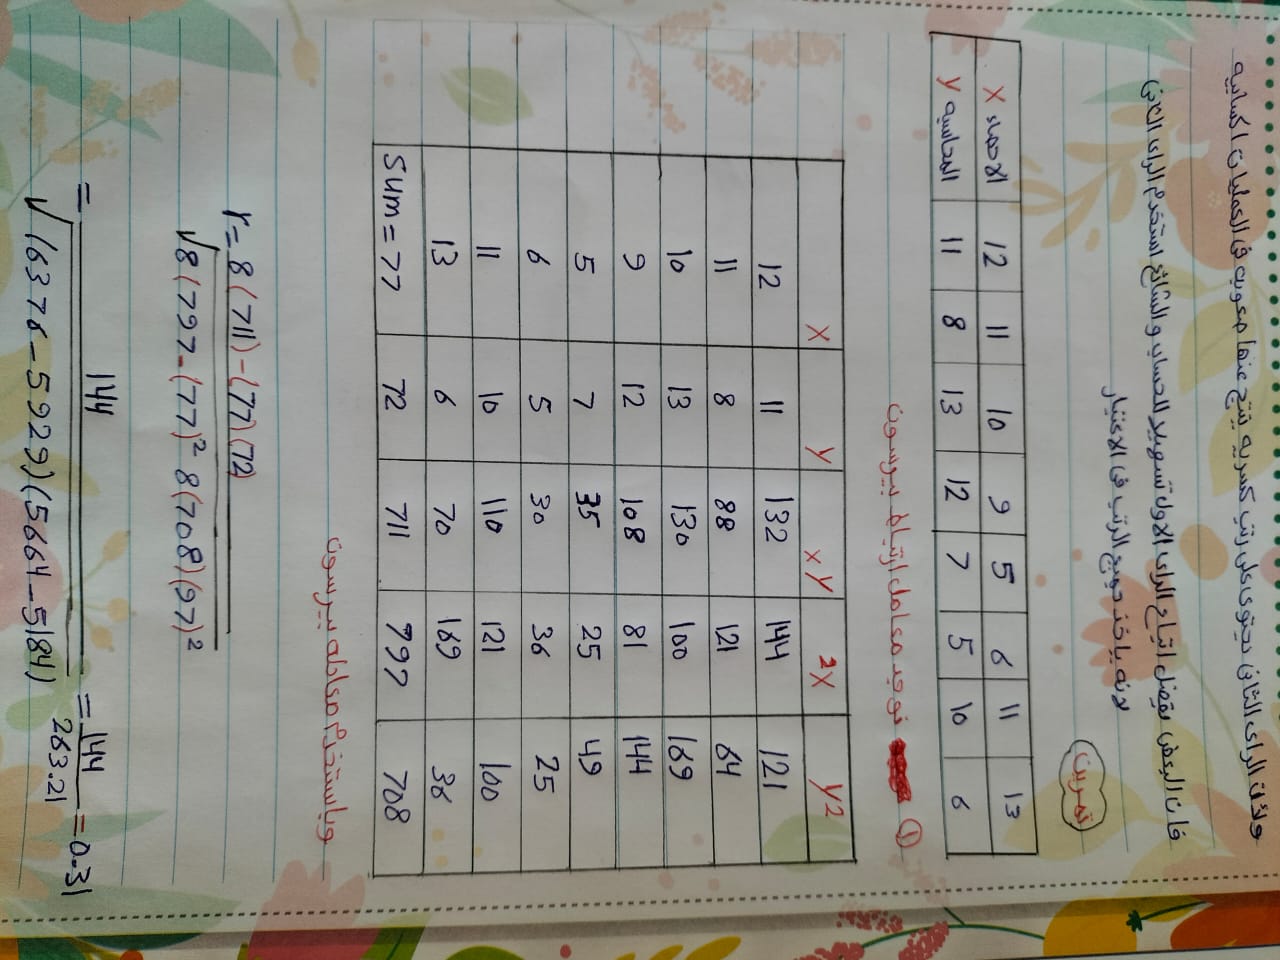 ولأن الرأى الثانى يحتوى على رتب كسرية ينتج عنها صعوبة فى العمليات الحسابية
فإن البعض يفضل اتباع الرأى الاول تسهيلا للحساب والشائع استخدام الرأى الثانى
لانه يأخذ جميع الرتب فى الاعتبار
تمرين
الاحصاء X 12 11 10 9 5 6 11 13
المحاسبه y 11 8 13 12 7 5 10 6
① نوجد معامل ارتباط بيرسون
X y xy 2X y2
12 11 132 144 121
11 8 88 121 64
10 13 130 100 169
9 12 108 81 144
5 7 35 25 49
6 5 30 36 25
11 10 110 121 100
13 6 70 169 36
Sum = 77 72 711 797 708
وباستخدام معادله بيرسون
r = 8(711)-(77)(72)
√8(797-(77)² 8(708)(97)²
= 144 = 144 = 0.31
√(6376-5929)(5664-5184) 263.21